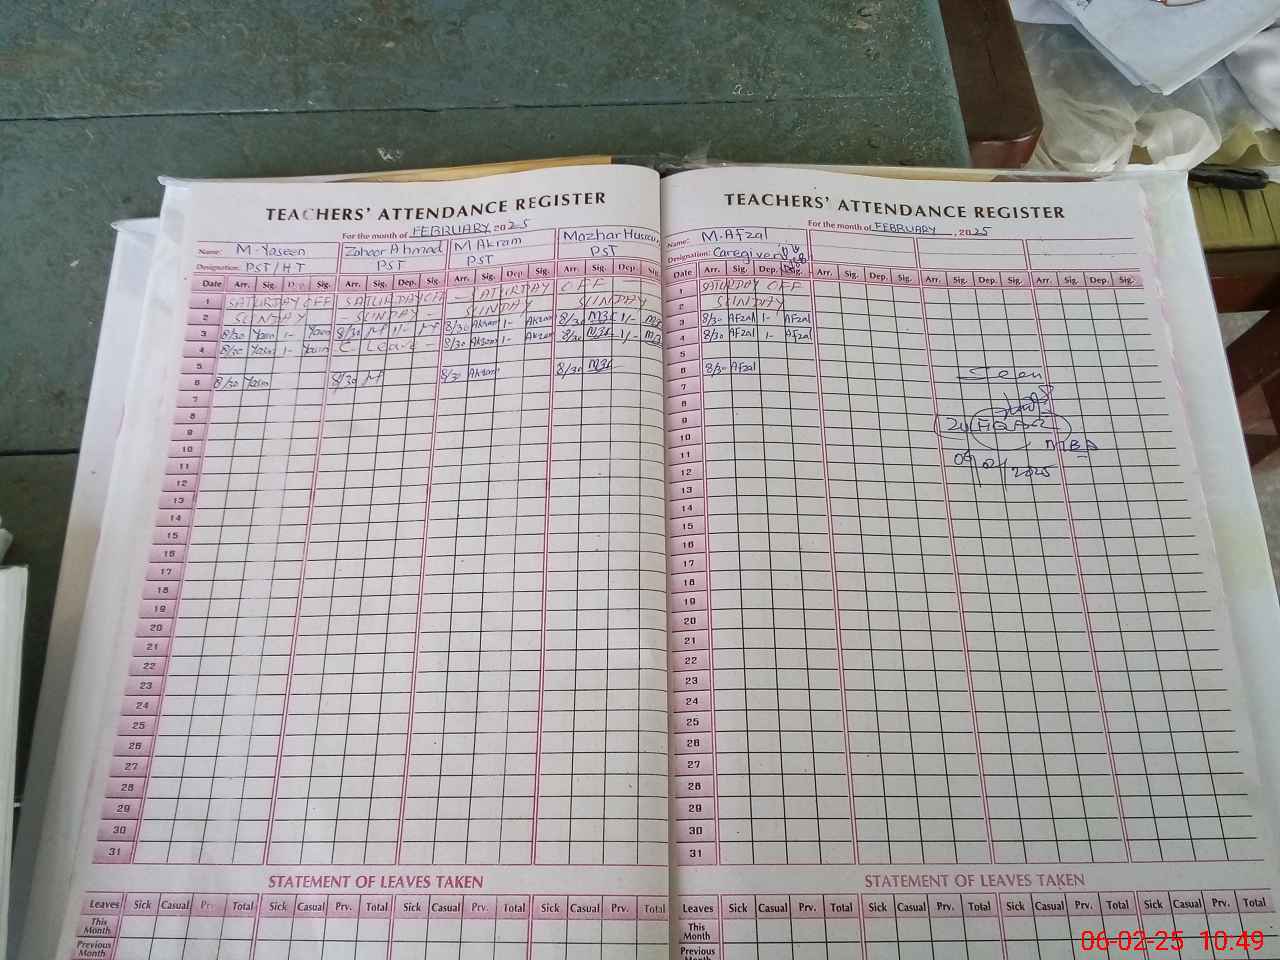 TEACHERS' ATTENDANCE REGISTER
For the month of FEBRUARY, 2025
Name: M. Yaseen Zahoor Ahmad M Akram Mazhar Hussain
Designation: PST/HT PST PST PST
Date Arr. Sig. Dep. Sig. Arr. Sig. Dep. Sig. Arr. Sig. Dep. Sig. Arr. Sig. Dep. Sig.
1 SATURDAY OFF - SATURDAY OFF - SATURDAY OFF
2 SUNDAY - SUNDAY - SUNDAY SUNDAY
3 8/30 1/- 8/30 1/- 8/30 Akram 1- Akram 8/30 1/-
4 8/30 1- C- Leave - 8/30 Akram 1- Akram 8/30 1/-
5
6 8/30 8/30 8/30 Akram 8/30
7
8
9
10
11
12
13
14
15
16
17
18
19
20
21
22
23
24
25
26
27
28
29
30
31
STATEMENT OF LEAVES TAKEN
Leaves Sick Casual Prv. Total Sick Casual Prv. Total Sick Casual Prv. Total Sick Casual Prv. Total
This Month
Previous Month
TEACHERS' ATTENDANCE REGISTER
For the month of FEBRUARY, 2025
Name: M. Afzal
Designation: Caregiver
Date Arr. Sig. Dep. Sig. Arr. Sig. Dep. Sig. Arr. Sig. Dep. Sig. Arr. Sig. Dep. Sig.
1 SATURDAY OFF
2 SUNDAY
3 8/30 Afzal 1- Afzal
4 8/30 Afzal 1- Afzal
5
6 8/30 Afzal
7
8
9
10
11
12
13
14
15
16
17
18
19
20
21
22
23
24
25
26
27
28
29
30
31
Seen
STATEMENT OF LEAVES TAKEN
Leaves Sick Casual Prv. Total Sick Casual Prv. Total Sick Casual Prv. Total Sick Casual Prv. Total
This Month
Previous Month
06-02-25 10.49